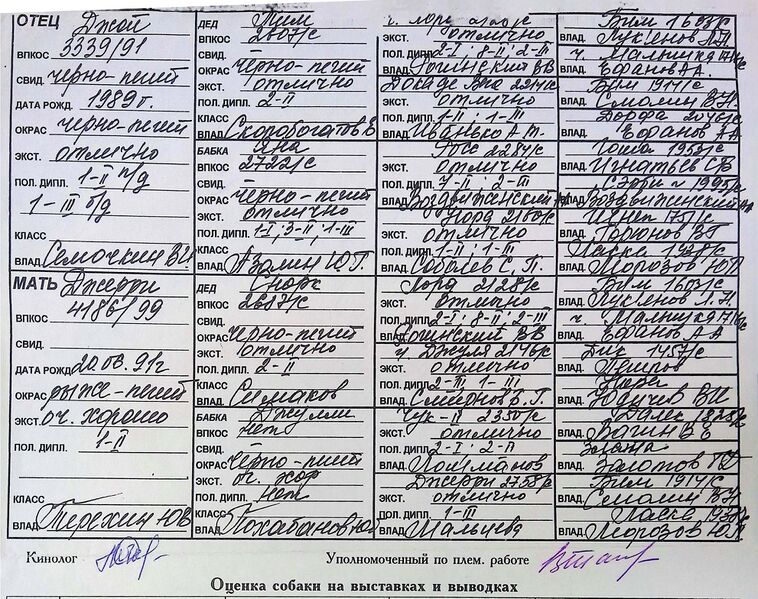 ОТЕЦ Джой
ВПКОС 3339/91
СВИД. черно-пегий
ДАТА РОЖД. 1989г.
ОКРАС черно-пегий
ЭКСТ. отлично
ПОЛ. ДИПЛ. 1-II п/д
1-III б/д
КЛАСС
ВЛАД. Семочкин ВИ
МАТЬ Джерри
ВПКОС 4186/99
СВИД.
ДАТА РОЖД 20.08.91г
ОКРАС рыже-пегий
ЭКСТ. оч. хорошо
ПОЛ. ДИПЛ. 1-II
КЛАСС
ВЛАД. Терехин ЮВ
ДЕД Тим
ВПКОС
СВИД.
ОКРАС черно-пегий
ЭКСТ. отлично
ПОЛ. ДИПЛ. 2-II
КЛАСС
ВЛАД Скоробогатов В
БАБКА Яна
ВПКОС 2722/с
СВИД.
ОКРАС черно-пегий
ЭКСТ. отлично
ПОЛ. ДИПЛ. 1-I; 3-II; 1-III
КЛАСС
ВЛАД Азалин Ю.Г.
ДЕД Норк
ВПКОС
СВИД.
ОКРАС черно-пегий
ЭКСТ. отлично
ПОЛ. ДИПЛ. 2-II
КЛАСС
ВЛАД Симаков
БАБКА Джулли
ВПКОС нет
СВИД.
ОКРАС черно-пегий
ЭКСТ. оч. хор
ПОЛ. ДИПЛ. нет
КЛАСС
ВЛАД Похабанов
ч. Лорд
ЭКСТ. отлично
ПОЛ. ДИПЛ. 2-I; 8-II; 2-III
ВЛАД. Рогинский ВВ
2214/с
ЭКСТ. отлично
ПОЛ. ДИПЛ. 1-II; 1-III
ВЛАД. Иванько А.Т.
2284/с
ЭКСТ. отлично
ПОЛ. ДИПЛ. 7-II; 2-III
ВЛАД. Воздвиженский
Норд 2180/с
ЭКСТ. отлично
ПОЛ. ДИПЛ. 1-II; 1-III
ВЛАД. Соболев С.П.
Лорд 2128/с
ЭКСТ. отлично
ПОЛ. ДИПЛ. 2-I; 8-II; 2-III
ВЛАД. Рогинский ВВ
ч. Джуля 2146/с
ЭКСТ. отлично
ПОЛ. ДИПЛ. 2-II, 1-III
ВЛАД. Смирнов В.Г.
Чук-II 2350/с
ЭКСТ. отлично
ПОЛ. ДИПЛ. 2-I; 2-II
ВЛАД. Лоцманов
Джерри
ЭКСТ. отлично
ПОЛ. ДИПЛ. 1-III
ВЛАД. Мальцева
Бим 1603/с
ВЛАД. Лукьянов Л.Н.
ч. Малышка
ВЛАД. Ефанов А.А.
Бим 1914/с
ВЛАД. Смолин В.Н.
Дорфа
ВЛАД. Ефанов А А
ВЛАД. Игнатьев СВ
ВЛАД. Воздвиженский
ВЛАД. Горюнов ВГ
Ласка
ВЛАД. Морозов ЮП
Бим 1603/с
ВЛАД. Лукьянов Л.Н.
ч. Малышка
ВЛАД. Ефанов А А
Дик 1457/с
ВЛАД. Петров
ВЛАД. Юдичев ВИ
ВЛАД. Вагин В Е
ВЛАД. Золотов
Бим 1914/с
ВЛАД. Смолин В.Н
Ласка
ВЛАД. Морозов Ю.П.
Кинолог Уполномоченный по плем. работе
Оценка собаки на выставках и выводках